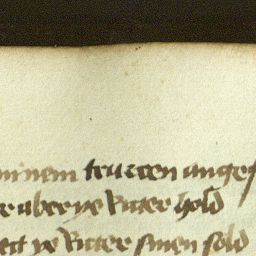 minem trurren anges
r aber ye Ritter hold
ett ye Ritter sinen sold